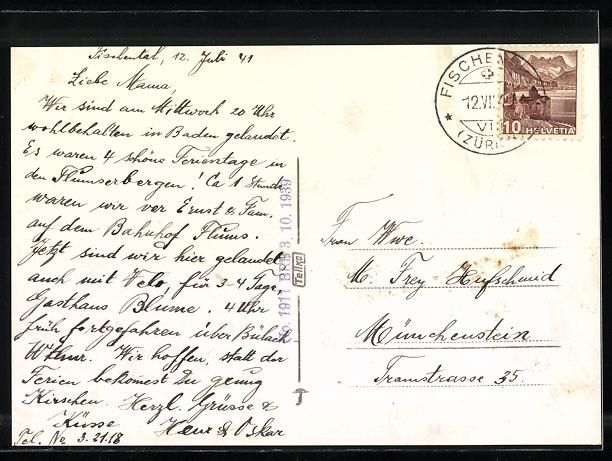 Fischental, 12. Juli 41
Liebe Mama,
Wir sind am Mittwoch 20 Uhr
wohlbehalten in Baden gelandet.
Es waren 4 schöne Ferientage in
den Flumserbergen! Ca 1 Stunde
waren wir vor Ernst & Fam.
auf dem Bahnhof Flums.
Jetzt sind wir hier gelandet
auch mit Velo, für 3-4 Tage,
Gasthaus Blume. 4 Uhr
früh fortgefahren über Bülach-
Wthur. Wir hoffen, statt der
Ferien bekomest Du genug
Kirschen. Herzl. Grüsse &
Küsse Heur & Oskar
Tel. Nr 3.21.18
No. 1911 BRB 3. 10. 1939
Tellko
FISCHEN
12.VII.41
VI
(ZÜRI
10 HELVETIA
Frau Wwe.
M. Frey-Hufschmid
Münchenstein
Tramstrasse 35.